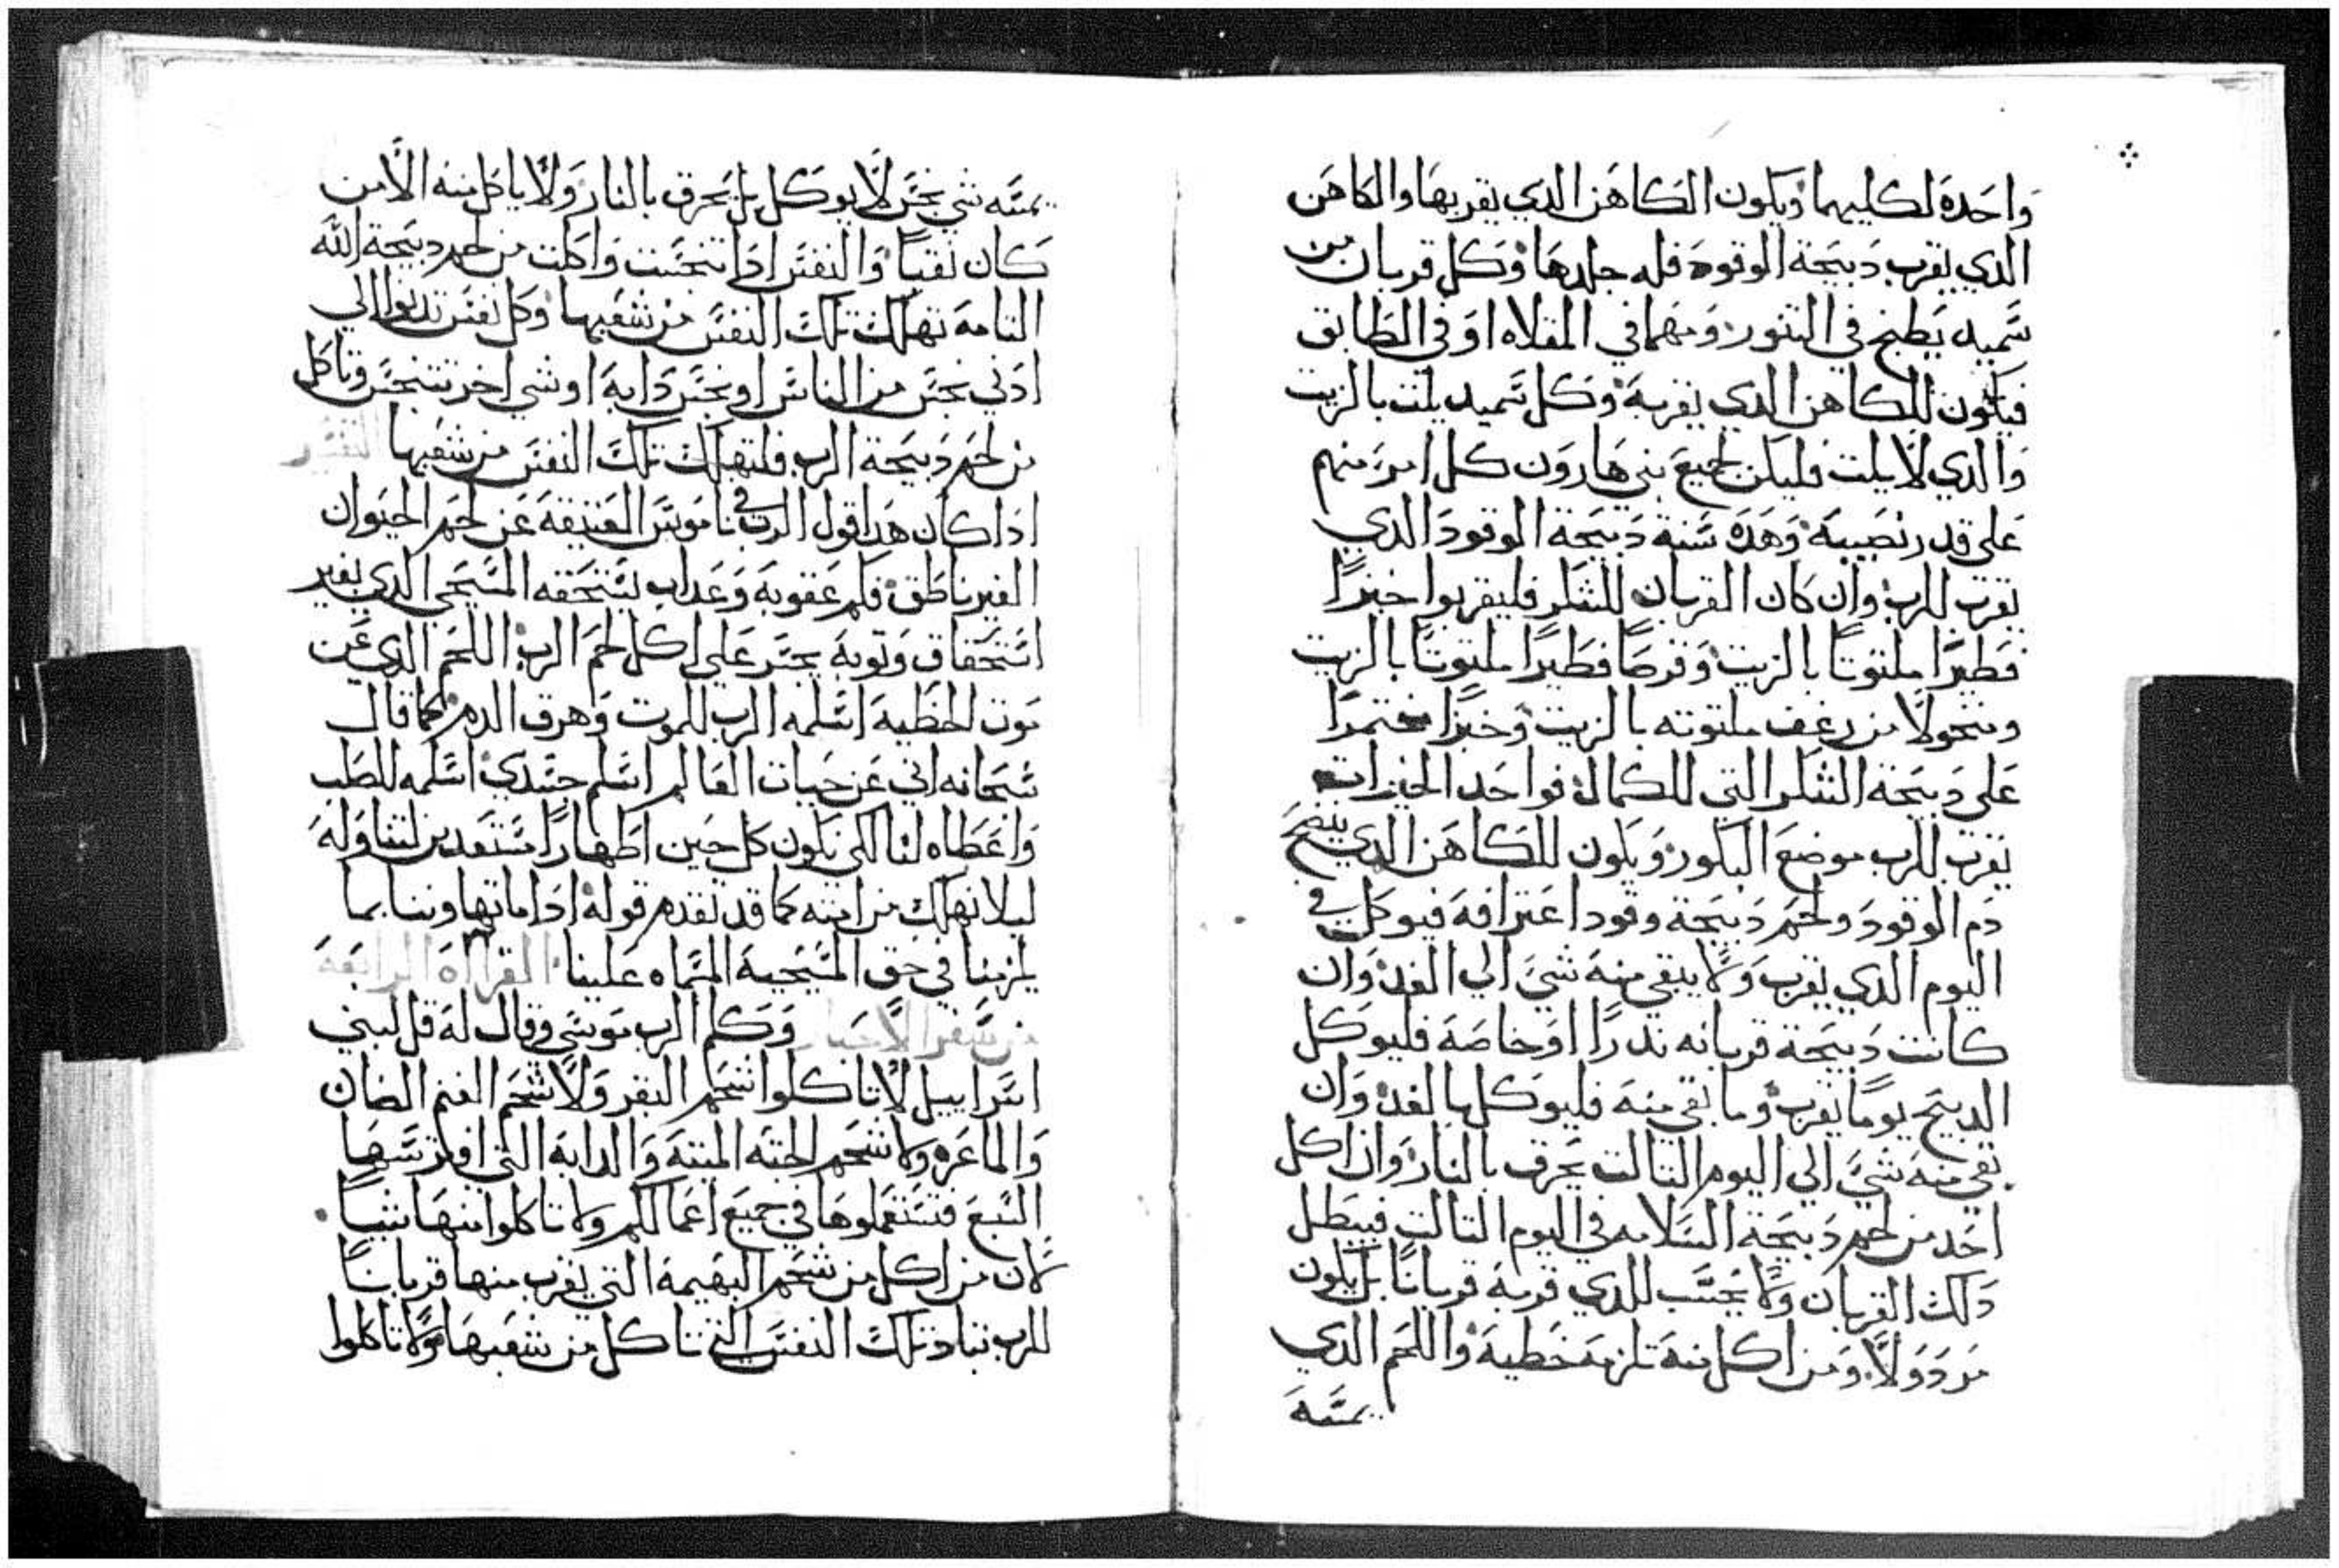 واحده لكليهما ويكون الكاهن الدي يقربها والكاهن
الدي يقرب دبيحة الوقود فله جلدها وكل قربان من
سميد يطبخ في التنور ومهما في المقلاه او في الطابق
فيكون للكاهن الدي يقربه وكل سميد يلت بالزيت
والدي لا يلت فليكن لجميع بني هارون كل امر منهم
على قدر نصيبه وهده سنة دبيحة الوقود الدي
تقرب للرب وان كان القربان للشكر فليقربوا خبزا
فطيرا ملتوتا بالزيت وقرصا فطيرا ملتوتا بالزيت
ومنخولا من رغف ملتوته بالزيت وخبزا مختمرا
على دبيحة الشكر التي للكمال فواحد الخبزات
يقرب للرب موضع البكور ويكون للكاهن الدي ينضح
دم الوقود ولحم دبيحة وقود اعترافه فيوكل في
اليوم الدي يقرب ولا يبقي منه شي الي الغد وان
كانت دبيحة قربانه ندرا او خاصه فليوكل
الدبيح يوما يقرب وما بقي منه فليوكل بالغد وان
بقي منه شي الي اليوم التالت يحرق بالنار وان اكل
احد من لحم دبيحة السلامه في اليوم التالت فيبطل
دلك القربان ولا يحسب للدي قربه قربانا بل يكون
مردولا ومن اكل منه تلزمه خطيه واللحم الدي
يمسه
يمسه شي نجس لا يوكل بل يحرق بالنار ولا ياكل منه الا من
كان نقيا والنفس ادا تنجست واكلت من لحم دبيحة الله
التامه تهلك تلك النفس من شعبها وكل نفس تدنوا الي
ادني نجس من الناس او نجس دابه او شي اخر تتنجس وتاكل
من لحم دبيحة الرب فلتهلك تلك النفس من شعبها التفسير
ادا كان هدا قول الرب في ناموس العتيقه عن لحم الحيوان
الغير ناطق فكم عقوبه وعداب يستحقه المسيحي الدي بغير
استحقاق وتوبه يجسر على اكل لحم الرب اللحم الدي عن
موت الخطيه اسلمه الرب للموت وهرق الدم كما قال
سبحانه اني عن حيات العالم اسلم جسدي اسلمه للصلب
واعطاه لنا لكي نكون كل حين اطهارا مستعدين لتناوله
ليلا نهلك من امته كما قد تقدم قوله ادا ما تهاوننا بما
يلزمنا في حق المسيحية المسماه علينا القراه الرابعه
من سفر الاحبار وكلم الرب موسي وقال له قل لبني
اسراييل لا تاكلوا شحم البقر ولا شحم الغنم الضان
والماعزه ولا شحم الجته الميته والدابه التي افترسها
السبع فتستعملوها في جميع اعمالكم ولا تاكلوا منها شيا
لان من اكل من شحم البهيمه التي يقرب منها قربانا
للرب تباد تلك النفس التي تاكل من شعبها ولا تاكلوا